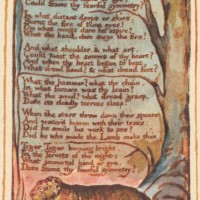 Could frame thy fearful symmetry?
In what distant deeps or skies
Burnt the fire of thine eyes?
On what wings dare he aspire?
What the hand, dare sieze the fire?
And what shoulder, & what art,
Could twist the sinews of thy heart?
And when thy heart began to beat,
What dread hand? & what dread feet?
What the hammer? what the chain,
In what furnace was thy brain?
What the anvil? what dread grasp,
Dare its deadly terrors clasp?
When the stars threw down their spears
And water'd heaven with their tears:
Did he smile his work to see?
Did he who made the Lamb make thee?
Tyger Tyger burning bright,
In the forests of the night:
What immortal hand or eye,
Dare frame thy fearful symmetry?